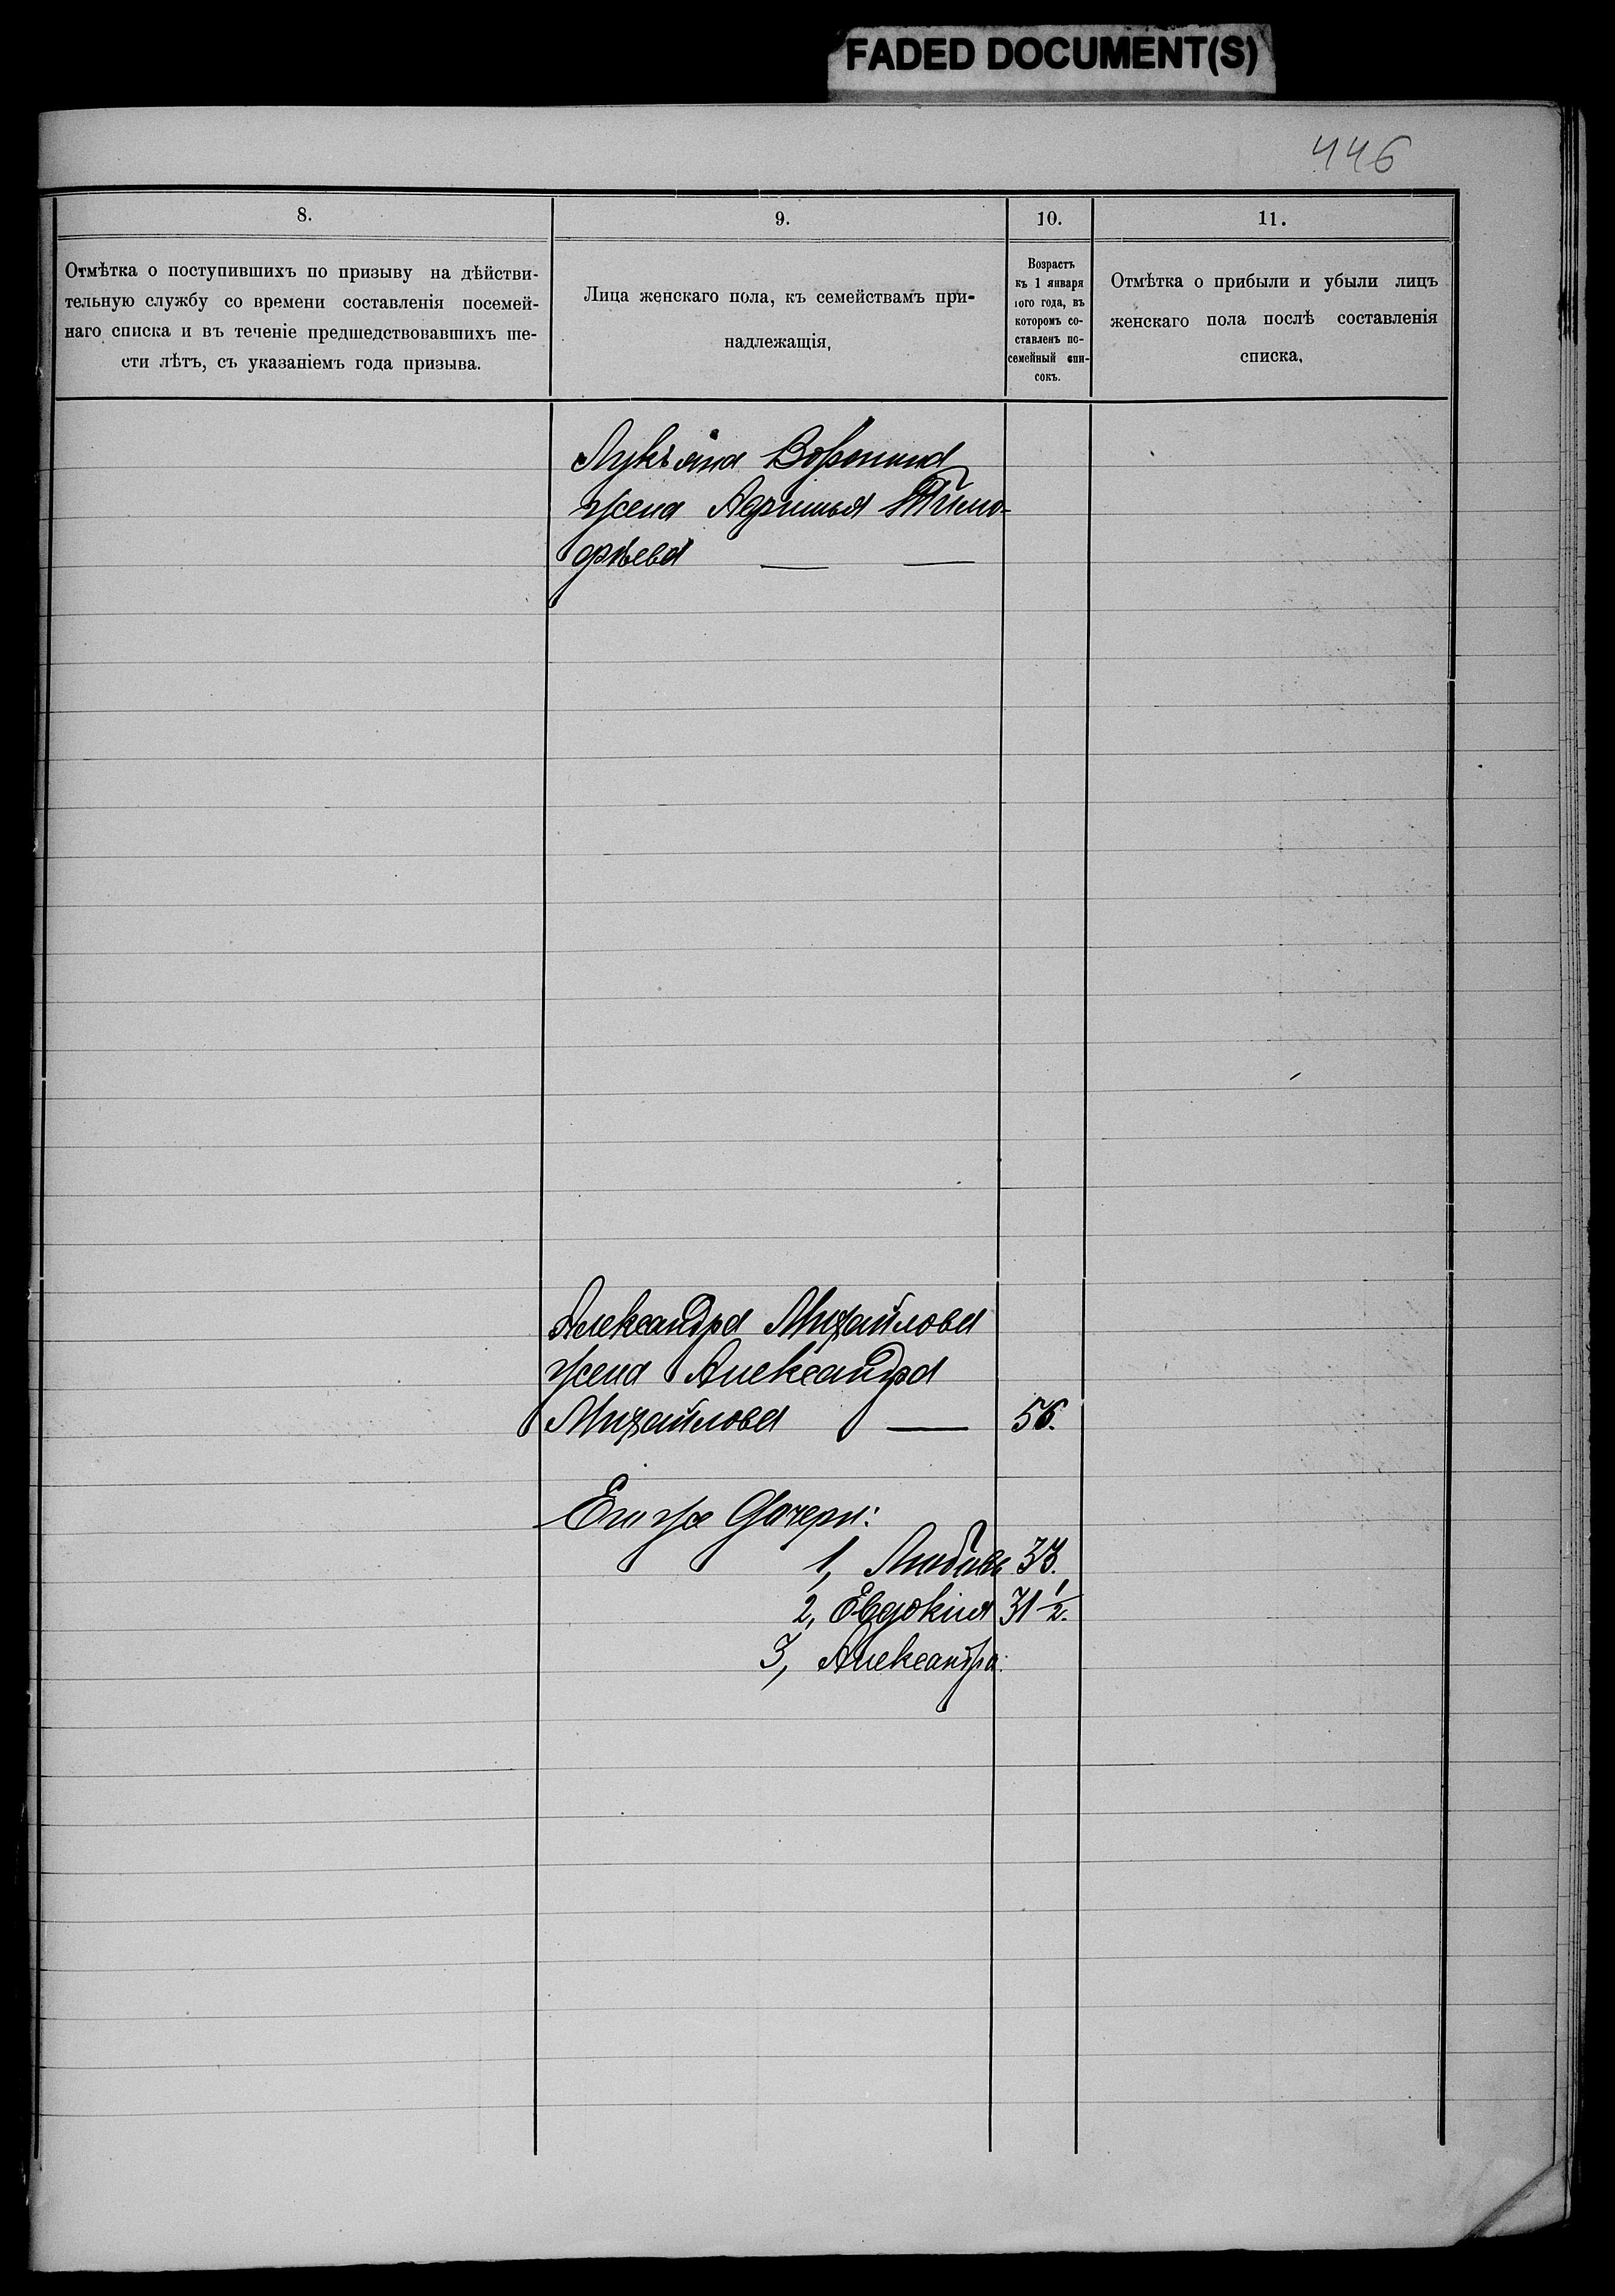 FADED DOCUMENT(S)
446
8.
Отмѣтка о поступившихъ по призыву на дѣйстви-
тельную службу со времени составленія посемей-
наго списка и въ теченіе предшедствовавшихъ ше-
сти лѣтъ, съ указаніемъ года призыва.
9.
Лица женскаго пола, къ семействамъ при-
надлежащія,
10.
Возрастъ
къ 1 января
того года, въ
которомъ со-
ставленъ по-
семейный спи-
сокъ.
11.
Отмѣтка о прибыли и убыли лицъ
женскаго пола послѣ составленія
списка,
Лукьяна Воронина
жена Тимо-
фѣева
Александра Михайлова
жена Александра
Михайлова — 56.
Его же дочери:
1, Любовь 33.
2, Евдокія 31 1/2.
3, Александра.